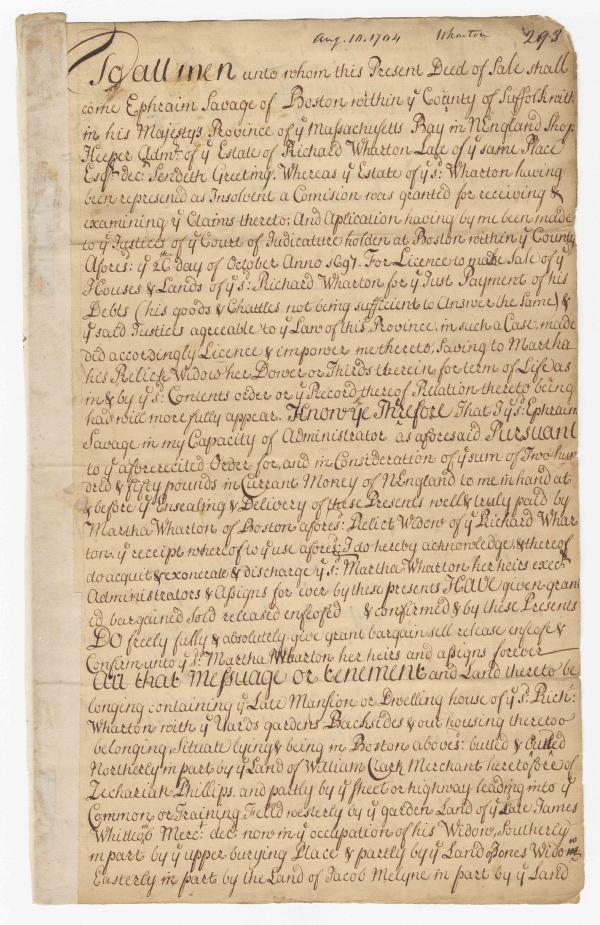 Aug. 10. 1704 Wharton 293
To all men unto whom this Present Deed of Sale shall
come Ephraim Savage of Boston within yᵉ County of Suffolk with
in his Majestys Province of yᵉ Massachusetts Bay in NEngland Shop
Keeper Admʳ of yᵉ Estate of Richard Wharton Late of yᵉ same Place
Esqʳ decᵈ Sendeth Greeting. Whereas yᵉ Estate of yᵉ sᵈ Wharton having
been represented as Insolvent a Comision was granted for receiving &
examining yᵉ Claims thereto; And Aplication having by me been made
to yᵉ Justices of yᵉ Court of Judicature holden at Boston within yᵉ County
Aforesᵈ: yᵉ 26ᵗʰ day of October Anno 1697. For Licence to make Sale of yᵉ
Houses & Lands of yᵉ sᵈ: Richard Wharton for yᵉ Just Payment of his
Debts (his goods & Chattles not being sufficient to Answer the Same) &
yᵉ said Justices agreable to yᵉ Law of this Province, in such a Case, made
did accordingly Licence & impower me thereto, Saving to Martha
his Relick Widow her Dower or Thirds therein for term of Life as
in & by yᵉ sᵈ: Contents order or yᵉ Record thereof Relation thereto being
had will more fully appear. Know ye Therefore That I yᵉ sᵈ: Ephraim
Savage in my Capacity of Administrator as aforesaid Pursuant
to yᵉ aforerecited Order for, and in Consideration of yᵉ sum of Two hun
dred & fifty pounds in Currant Money of NEngland to me in hand at
& before yᵉ Ensealing & Delivery of these Presents well & truly paid by
Martha Wharton of Boston aforesᵈ: Relict Widow of yᵉ Richard Whar
ton, yᵉ receipt whereof to yᵉ use aforesᵈ: I do hereby acknowledge, & thereof
do acquit & exonerate & discharge yᵉ sᵈ: Martha Wharton her heirs execʳˢ
Administrators & Assigns for ever by these presents HAVE given grant
ed bargained sold released enfeofed & confirmed & by these Presents
DO freely fully & absolutely give grant bargain sell release enfeofe &
Confirm unto yᵉ sᵈ: Martha Wharton her heirs and assigns forever
All that Messuage or tenement and Land thereto be
longing containing yᵉ Late Mansion or Dwelling house of yᵉ sᵈ: Richᵈ:
Wharton with yᵉ Yards gardens Backsides & out housing theretoo
belonging, Situate lying & being in Boston abovesᵈ: butted &
Northerly in part by yᵉ Land of William Clark Merchant heretofore of
Zechariah Phillips, and partly by yᵉ street or highway leading into yᵉ
Common or Training Feild westerly by yᵉ garden Land of yᵉ Late James
Whitcomb Mercʳ: decᵈ: now in yᵉ occupation of his Widow, Southerly
in part by yᵉ upper burying Place & partly by yᵉ Land of Jones Widow
Easterly in part by the Land of Jacob Melyne in part by yᵉ Land